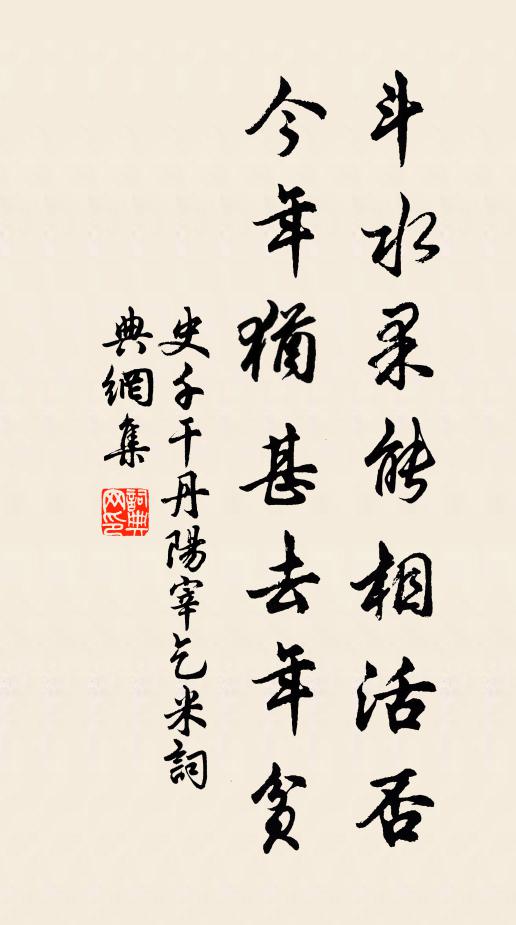 斗水果能相活否
今年猶甚去年貧
史千干丹陽宰乞米詞
典網集
詞典網印